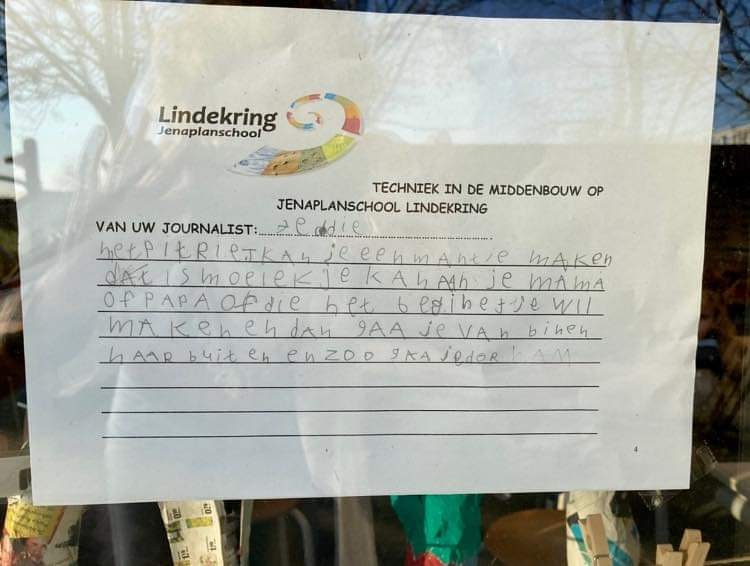 Lindekring
Jenaplanschool
TECHNIEK IN DE MIDDENBOUW OP
JENAPLANSCHOOL LINDEKRING
VAN UW JOURNALIST: zeddie
het PItRIEt KAn je een mAntje mAKen
dAt IS moeiek je KAn AAn je mAmA
OF PAPA OF die het beginetje WIl
mAKen en dAn gAA je VAn binen
nAAR buiten en ZOO gKA je doR
4